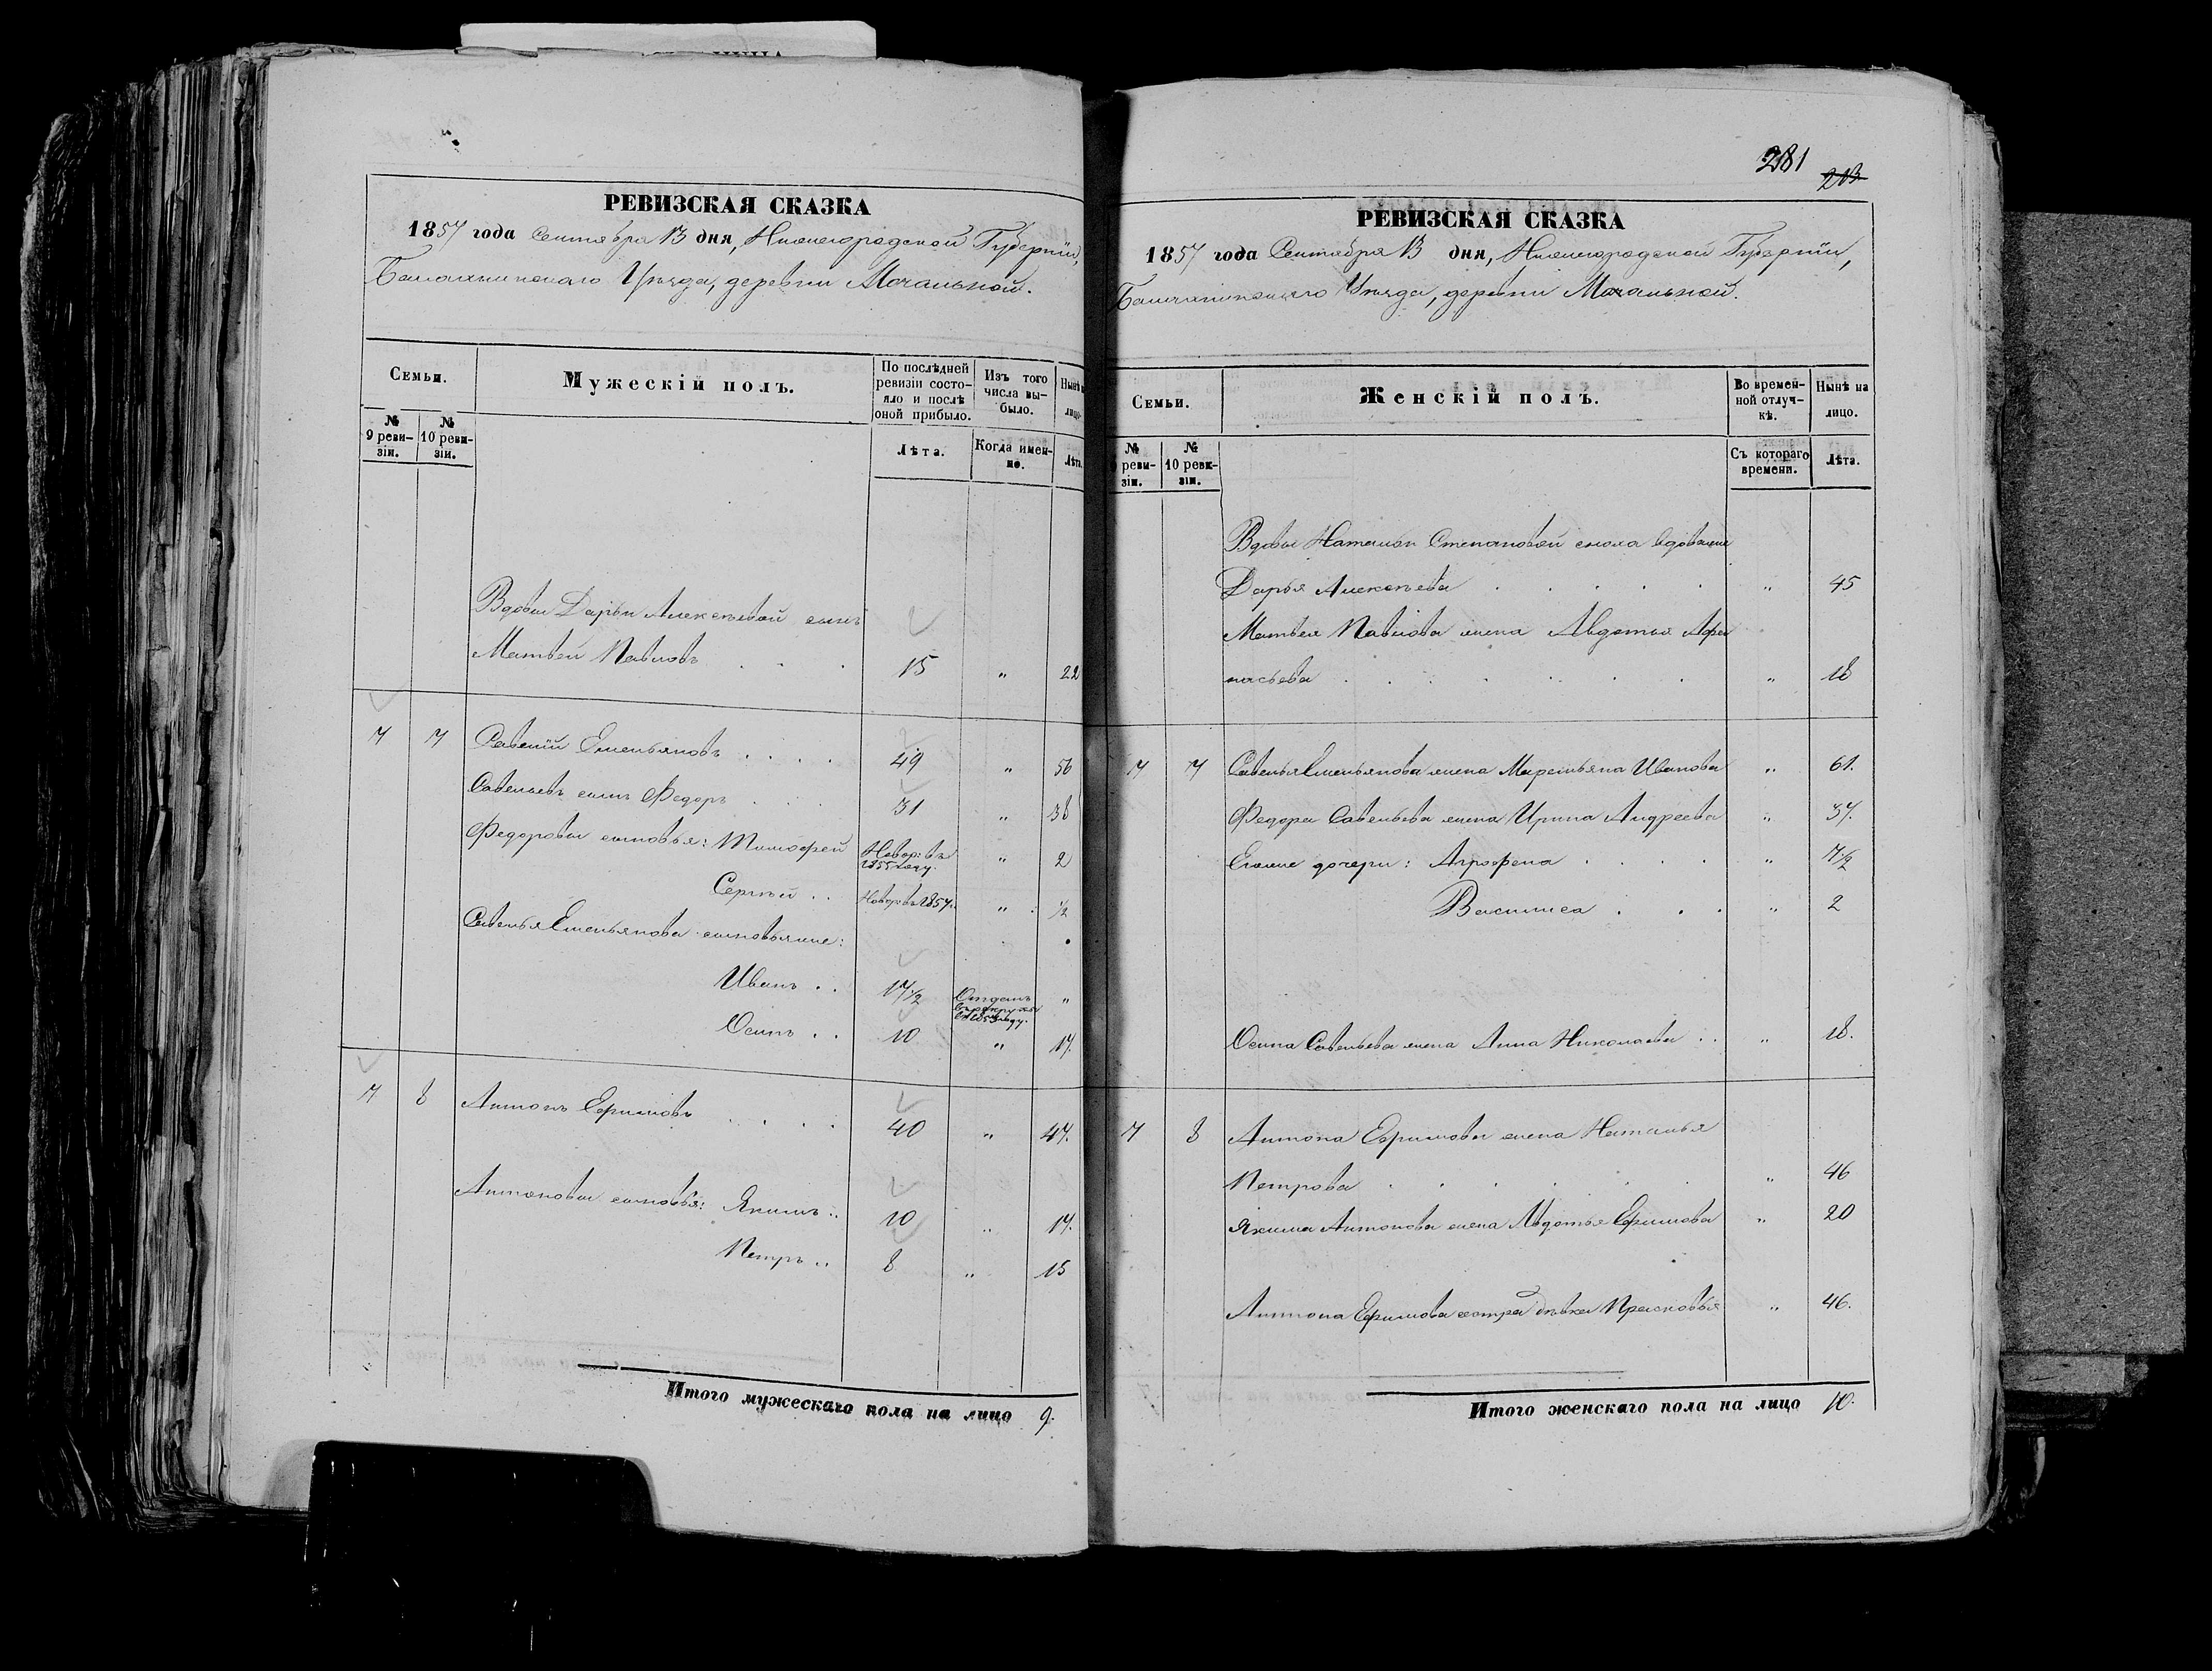 РЕВИЗСКАЯ СКАЗКА
1857 года Сентября 13 дня, Нижегородской Губернии,
Балахнинскаго Уѣзда, деревни Мочальной.
Семьи.
Мужескій полъ.
По послѣдней ревизіи состояло и послѣ оной прибыло.
Изъ того числа выбыло.
Нынѣ
лицо
№ 9 ревизіи.
№ 10 ревизіи.
Лѣта.
Когда именно.
Лѣта.
Вдовы Дарьи Алексѣевой сынъ
Матвей Павловъ . . . 15 " 22
7 7 Савелій Емельяновъ . . . . 49 " 56
Савельевъ сынъ Федоръ . . . 31 " 38
Федоровы сыновья: Тимофей Новор: въ 1855 году. " 2
Сергѣй . . Новор въ 1857. " 1/2
Савелья Емельянова сыновьяже:
Иванъ . . 17 1/2 Отданъ въ рекруты въ 1853 году. "
Осипъ . . 10 " 17.
7 8 Антонъ Ефимовъ . . . . 40 " 47.
Антоновы сыновья: Якимъ .. 10 " 17.
Петръ .. 8 " 15
Итого мужескаго пола на лицо 9.
281
213
РЕВИЗСКАЯ СКАЗКА
1857 года Сентября 13 дня, Нижегородской Губерніи,
Балахнинскаго Уѣзда, деревни Мочальной.
Семьи.
Женскій полъ.
Во временной отлучкѣ.
Нынѣ на лицо.
№ ревизіи.
№ 10 ревизіи.
Съ котораго времени.
Лѣта.
Вдовы Натальи Степановой сноха вдоваже
Дарья Алексѣева . . . . . " 45
Матвея Павлова жена Авдотья Афа
насьева . . . . . . . " 18
7 7 Савелья Емельянова жена Маремьяна Иванова " 61.
Федора Савельева жена Ирина Андреева " 37.
Егоже дочери: Агрофена . . . . " 7 1/2
Василиса . . . " 2
Осипа Савельева жена Анна Николаева . . " 18.
7 8 Антона Ефимова жена Наталья
Петрова . . . . . . " 46
Якима Антонова жена Авдотья Ефимова " 20
Антона Ефимова сестра дѣвка Прасковья " 46.
Итого женскаго пола на лицо 10.